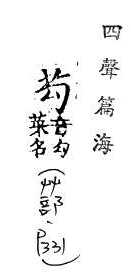 四聲篇海
芶
音勾
菜名
(艸部.P331)